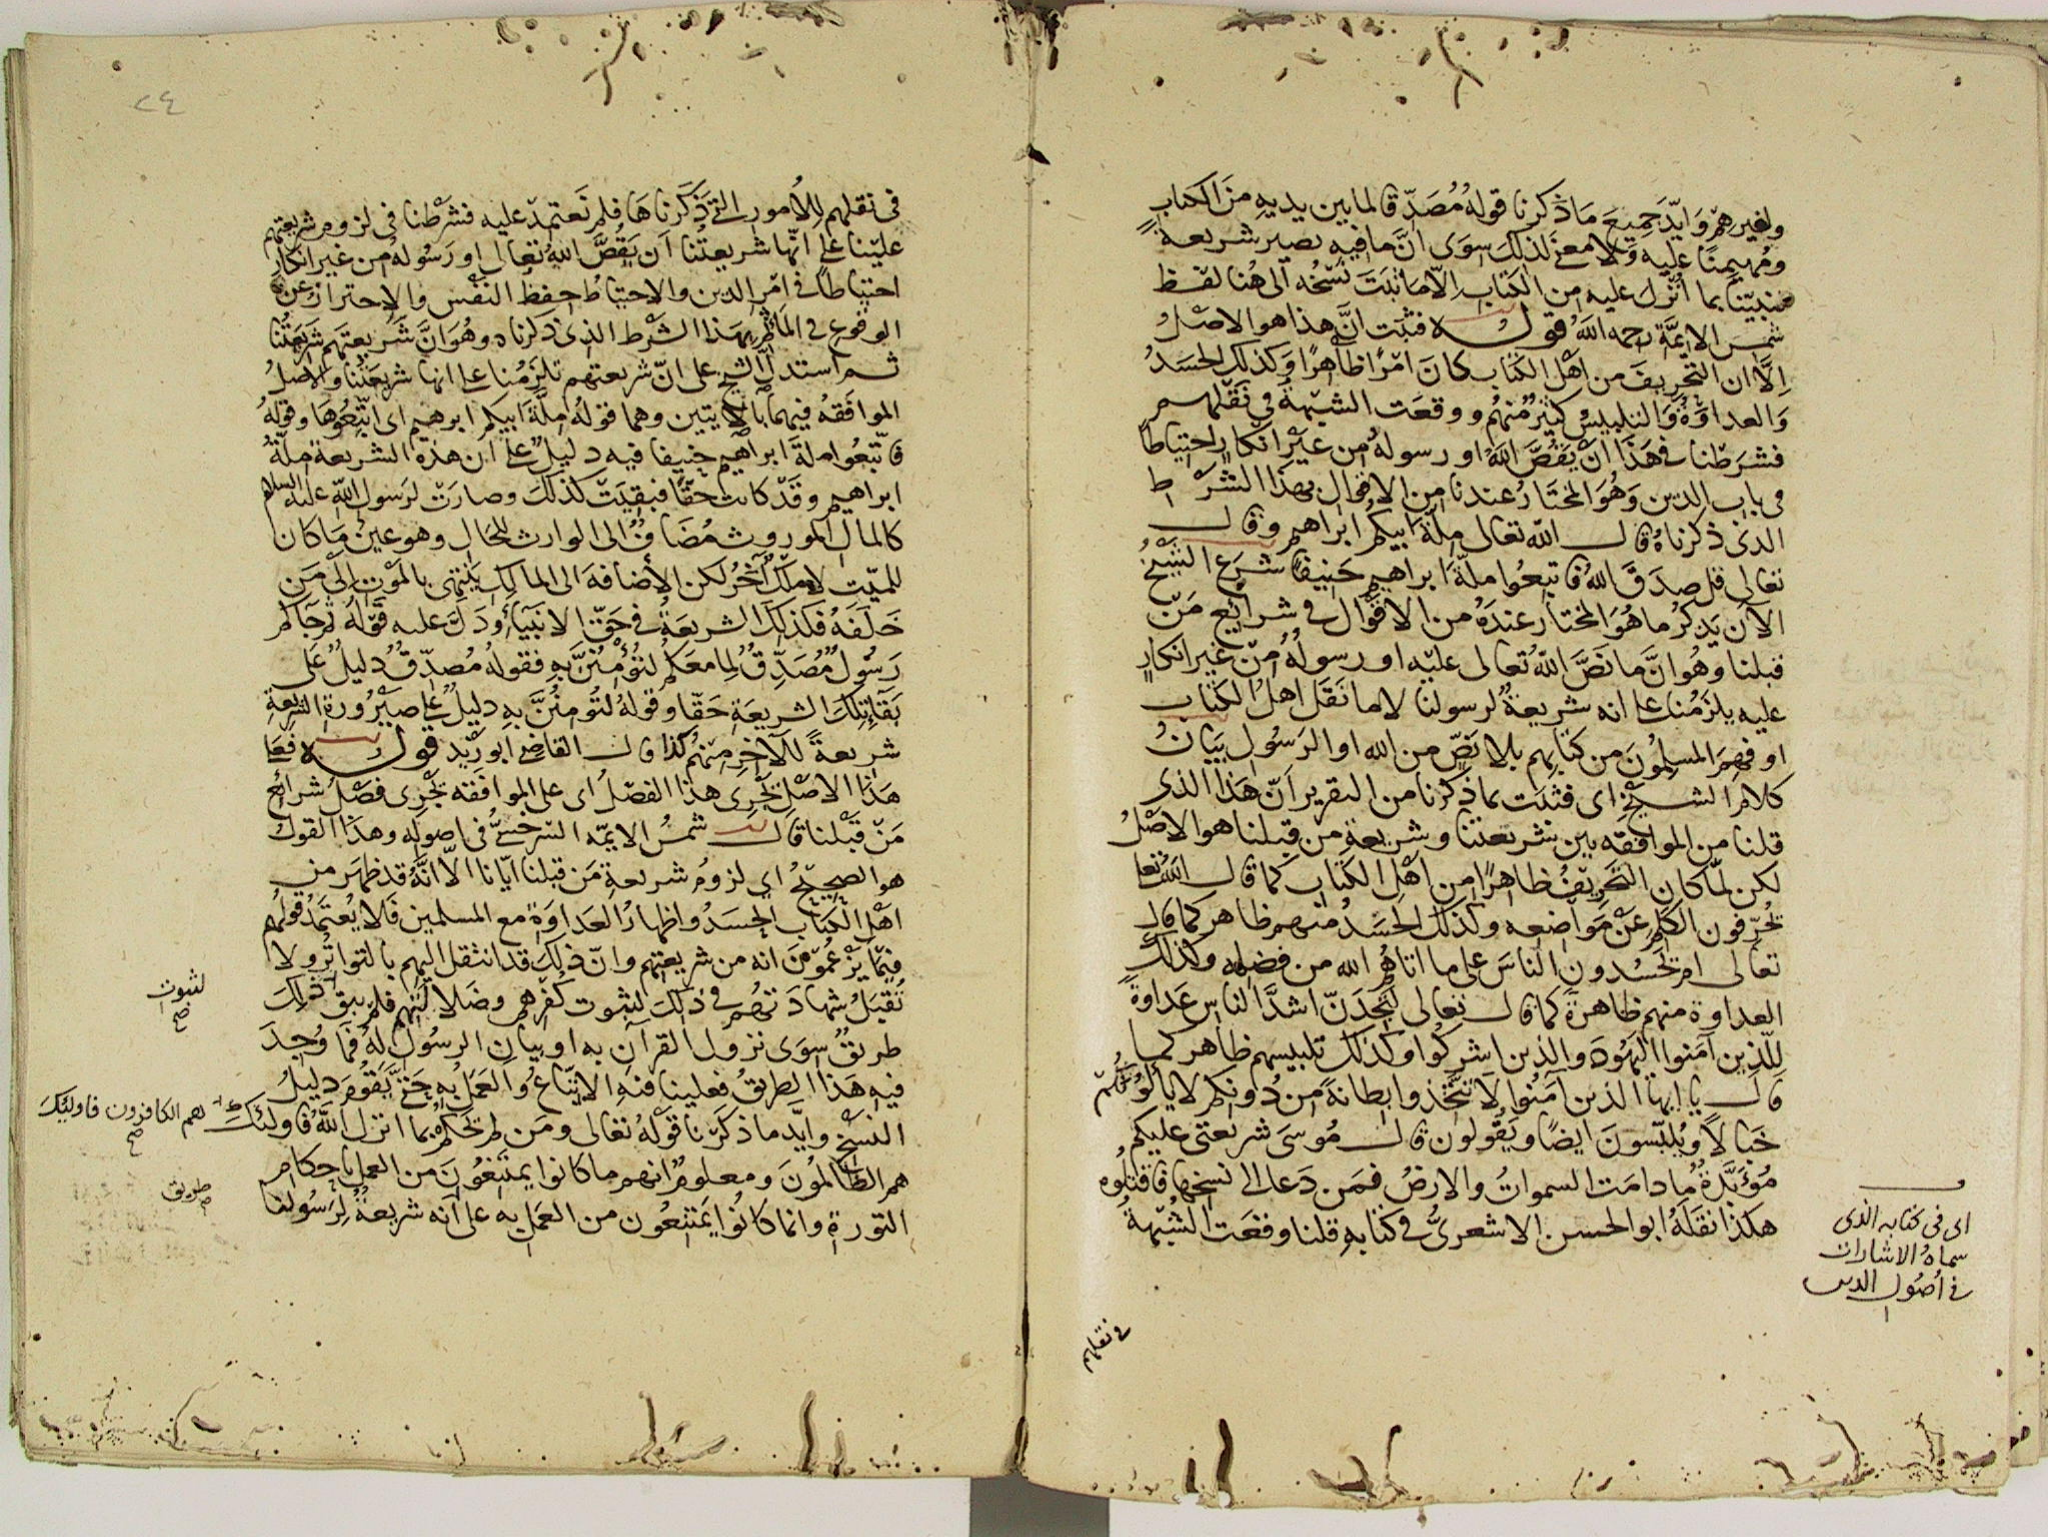 ولغيرهم وايد جميع ما ذكرنا قوله مصدقا لما بين يديه من الكتاب
ومهيمنا عليه ولا معنى لذلك سوى ان ما فيه يصير شريعة
لنبينا بما انزل عليه من الكتاب الا ما ثبت نسخه الى هنا لفظ
شمس الايمة رحمه الله قوله فثبت ان هذا هو الاصل
الا ان التحريف من اهل الكتاب كان امرا ظاهرا وكذلك الحسد
والعداوة والتلبيس كثير منهم ووقعت الشبهة في نقلهم
فشرطنا في هذا ان يقص الله او رسوله من غير انكار احتياطا
في باب الدين وهو المختار عندنا من الاقوال بهذا الشرط
الذى ذكرناه قال الله تعالى ملة ابيكم ابراهيم وقال
تعالى قل صدق الله فاتبعوا ملة ابراهيم حنيفا شرع الشيخ
الآن يذكر ما هو المختار عنده من الاقوال في شرايع من
قبلنا وهو ان ما نص الله تعالى عليه او رسوله من غير انكار
عليه يلزمنا على انه شريعة لرسولنا لا ما نقل اهل الكتاب
او فهم المسلمون من كتابهم بلا نص من الله او الرسول بيان
كلام الشيخ اى فثبت بما ذكرنا من التقرير ان هذا الذى
قلنا من الموافقه بين شريعتنا وشريعة من قبلنا هو الاصل
لكن لما كان التحريف ظاهرا من اهل الكتاب كما قال الله تعا
يحرفون الكلم عن مواضعه وكذلك الحسد منهم ظاهر كما قال
تعالى ام يحسدون الناس على ما اتاهم الله من فضله وكذلك
العداوة منهم ظاهرة كما قال تعالى لتجدن اشد الناس عداوة
للذين آمنوا اليهود والذين اشركوا وكذلك تلبيسهم ظاهر كما
قال يا ايها الذين آمنوا لا تتخذوا بطانة من دونكم لا يألونكم
خبالا ويلبسون ايضا ويقولون قال موسى شريعتى عليكم
مؤبدة ما دامت السموات والارض فمن دعا الى نسخها فاقتلوه
هكذا نقله ابو الحسن الاشعرى في كتابه قلنا وقعت الشبهة
اى فى كتابه الذى
سماه الاشارات
في اصول الدين
في نقلهم
٢٤
فى نقلهم للامور التى ذكرناها فلم نعتمد عليه فشرطنا فى لزوم شريعتهم
علينا على انها شريعتنا ان يقص الله تعالى او رسوله من غير انكار
احتياطا في امر الدين والاحتياط حفظ النفس والاحتراز عن
الوقوع في المآثم بهذا الشرط الذى ذكرناه وهو ان شريعتهم شريعتنا
ثم استدل الشيخ على ان شريعتهم تلزمنا على انها شريعتنا والاصل
الموافقه فيهما بالايتين وهما قوله ملة ابيكم ابرهيم اى اتبعوها وقوله
فاتبعوا ملة ابراهيم حنيفا فيه دليل على ان هذه الشريعة ملة
ابراهيم وقد كانت حقا فبقيت كذلك وصارت لرسول الله عليه السلام
كالمال الموروث مضاف الى الوارث للحال وهو عين ما كان
للميت لا ملك آخر لكن الاضافة الى المالك ينتهى بالموت الى من
خلفه فكذلك الشريعة في حق الانبياء ودل عليه قوله ثم جاكم
رسول مصدق لما معكم لتؤمنن به فقوله مصدق دليل على
بقاء تلك الشريعة حقا وقوله لتومنن به دليل على صيرورة الشريعة
شريعة للآخر منهم كذا قال القاضى ابو زيد قوله فعلى
هذا الاصل يجرى هذا الفصل اى على الموافقه يجرى فصل شرائع
من قبلنا قال شمس الايمه السرخسى فى اصوله وهذا القول
هو الصحيح اى لزوم شريعة من قبلنا ايانا الا انه قد ظهر من
اهل الكتاب الحسد واظهار العداوة مع المسلمين فلا يعتمد قولهم
فيما يزعمون انه من شريعتهم وان ذلك قد انتقل اليهم بالتواتر ولا
تقبل شهادتهم في ذلك لثبوت كفرهم وضلالتهم فلم يبق لثبوت ذلك
طريق سوى نزول القرآن به او بيان الرسول له فما وجد
فيه هذا الطريق فعلينا فيه الاتباع والعمل به حتى يقوم دليل
النسخ وايد ما ذكرنا قوله تعالى ومن لم يحكم بما انزل الله فاولئك
هم الظالمون ومعلوم انهم ما كانوا يمتنعون من العمل باحكام
التورة وانما كانوا يمتنعون من العمل به على انه شريعة لرسولنا
لثبوت
صح
هم الكافرون فاوليك
صح
طريق